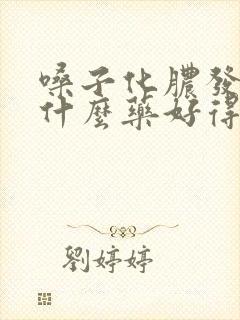 嗓子化膿發
什麼藥好得
劉婷婷